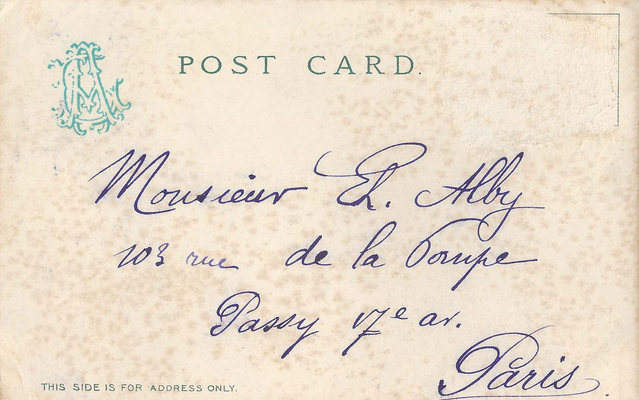 POST CARD.
Monsieur Ch. Alby
103 rue de la Pompe
Passy 17e ar.
Paris.
THIS SIDE IS FOR ADDRESS ONLY.